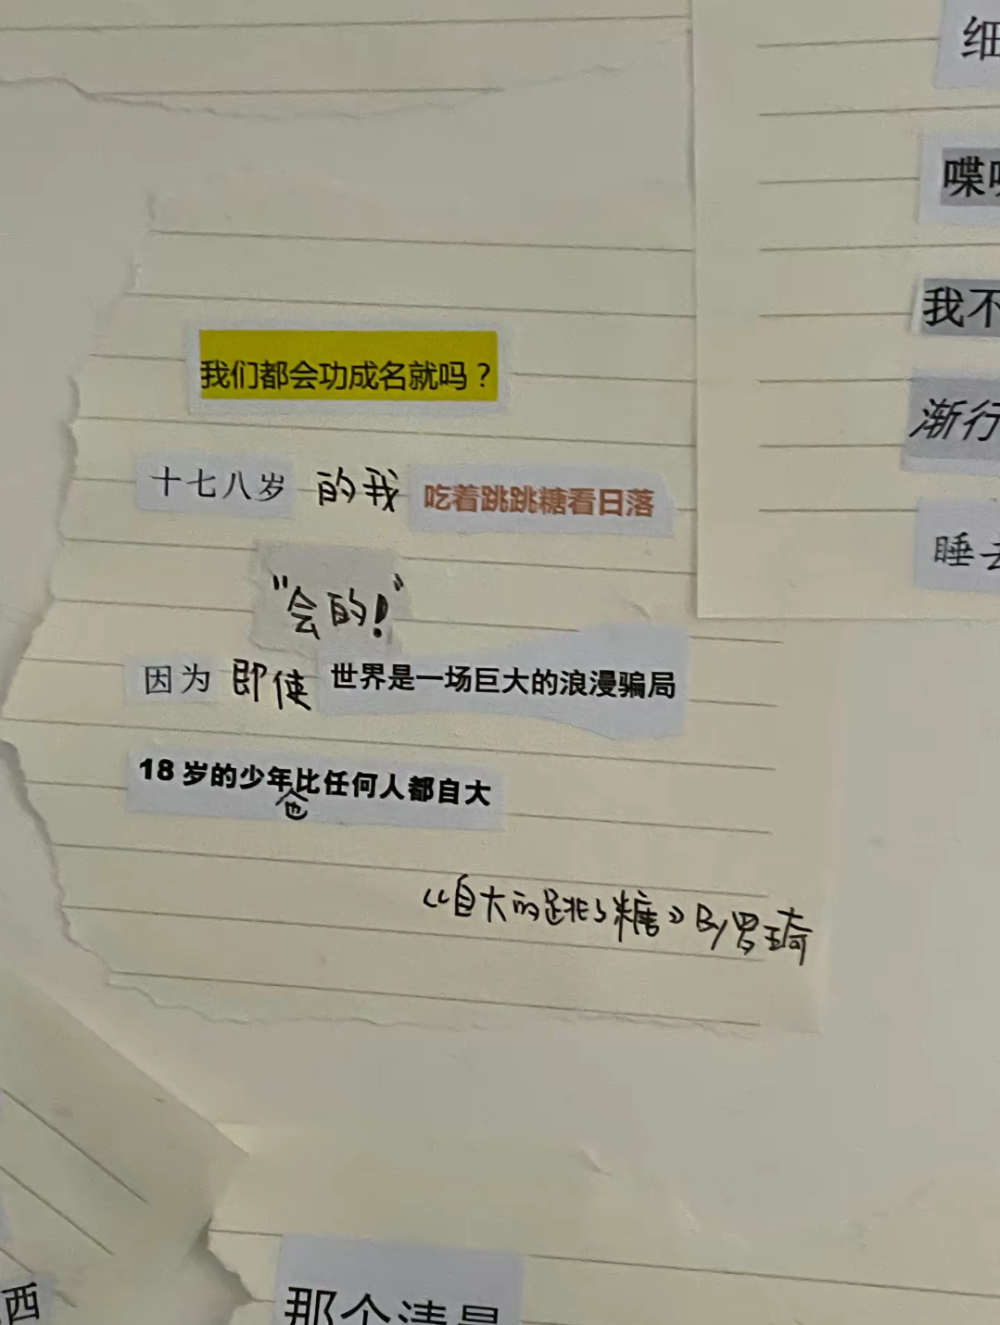 我们都会功成名就吗？
十七八岁 的我 吃着跳跳糖看日落
“会的！”
因为 即使 世界是一场巨大的浪漫骗局
18 岁的少年也比任何人都自大
《自大的跳跳糖》By罗琦
细
喋
我不
渐行
睡去
西
那个清晨